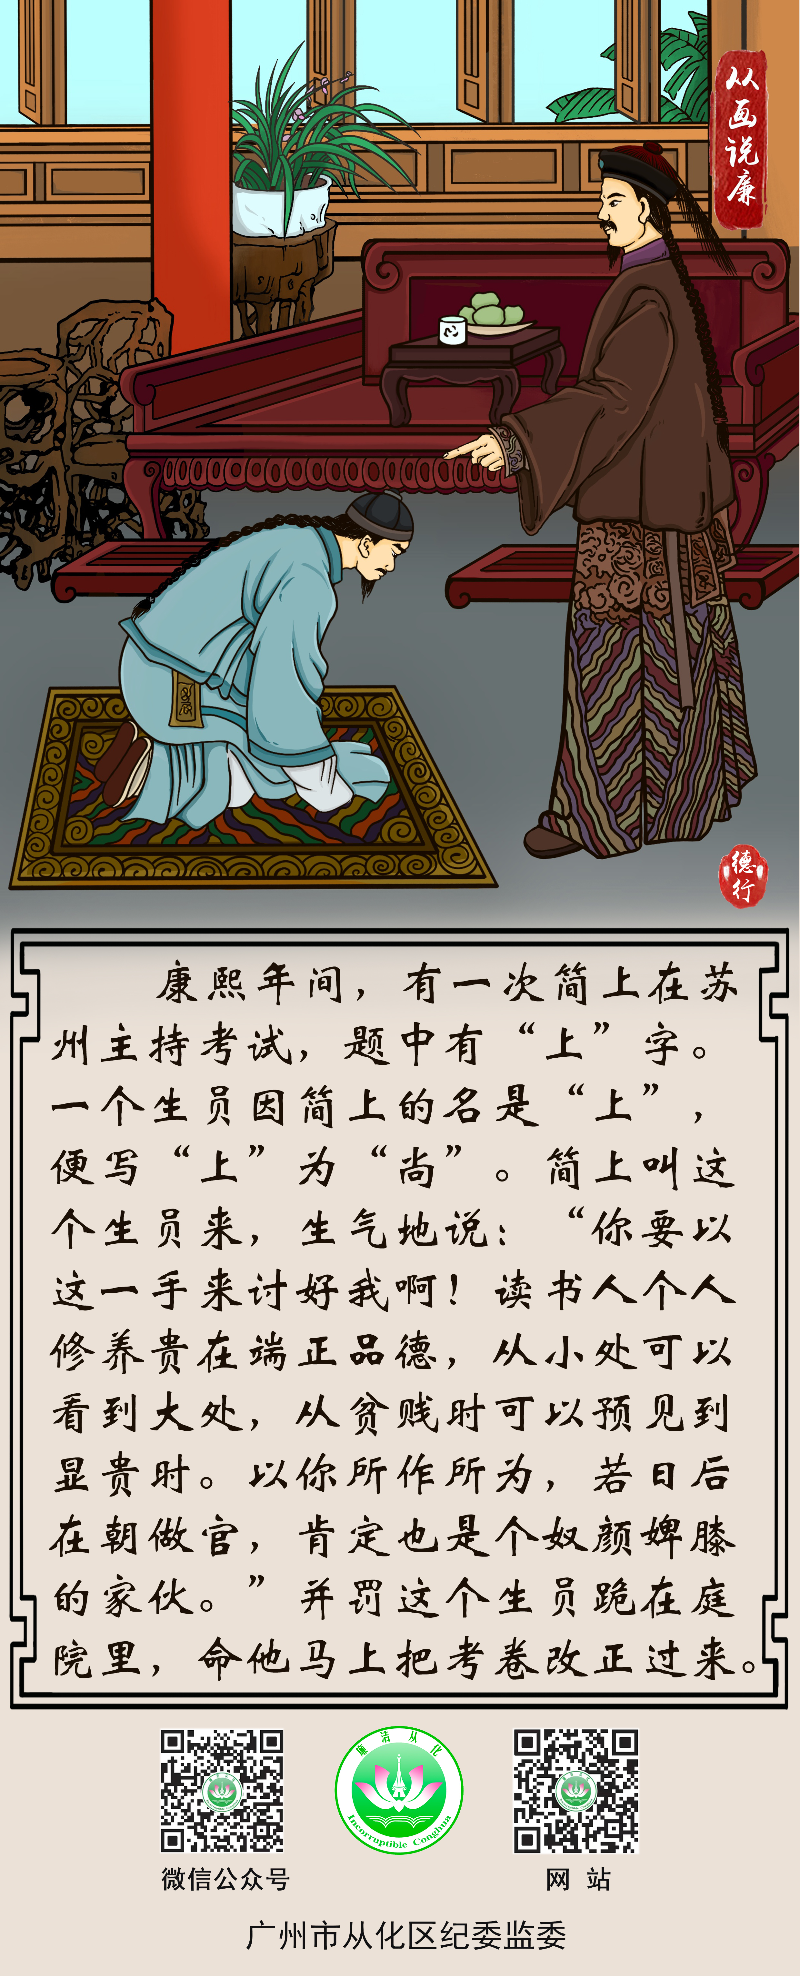 从画说廉
德行
康熙年间，有一次简上在苏
州主持考试，题中有“上”字。
一个生员因简上的名是“上”，
便写“上”为“尚”。简上叫这
个生员来，生气地说：“你要以
这一手来讨好我啊！读书人个人
修养贵在端正品德，从小处可以
看到大处，从贫贱时可以预见到
显贵时。以你所作所为，若日后
在朝做官，肯定也是个奴颜婢膝
的家伙。”并罚这个生员跪在庭
院里，命他马上把考卷改正过来。
廉洁从化
Incorruptible Conghua
微信公众号
网 站
广州市从化区纪委监委